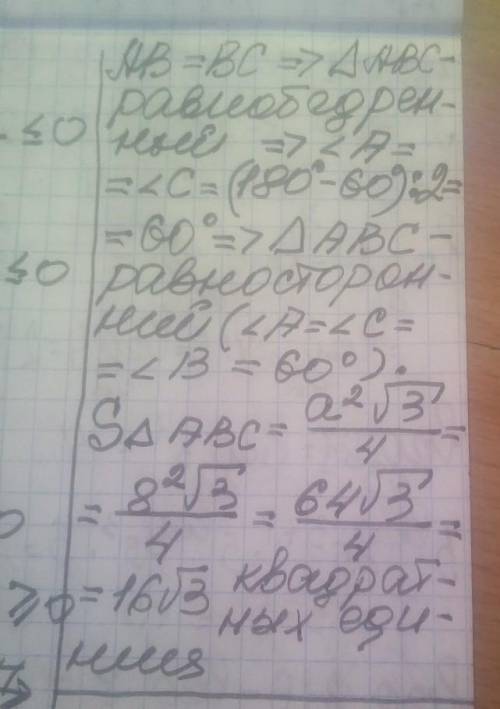 AB = BC => △ABC -
равнобедрен-
ный => ∠A =
- ≤0
= ∠C = (180° - 60°):2 =
= 60° => △ABC -
≤0
равносторон-
ний (∠A = ∠C =
= ∠B = 60°).
S△ABC = a²√3/4 =
= 8²√3/4 = 64√3/4 =
≥0
= 16√3 квадрат-
ных еди-
ниц